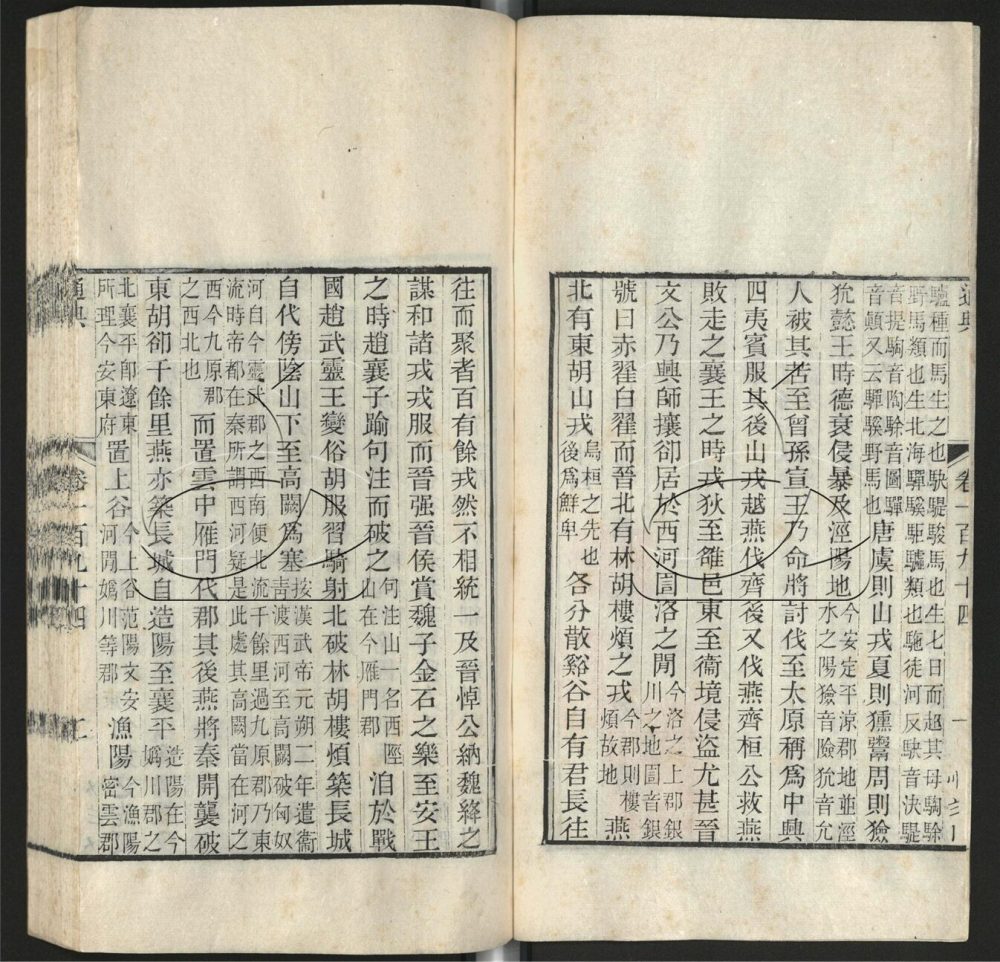 通典
卷一百九十四
一
驢種而馬生之也駃騠駿馬也生七日而超其母駒駼
野馬類也生北海驒騱駏驉類也駞徒河反駃音決騠
音提駒音陶駼音圖驒
音顛又云驒騱野馬也唐虞則山戎夏則獯鬻周則獫
狁懿王時德衰侵暴及涇陽地今安定平涼郡地並涇
水之陽獫音險狁音允
人被其苦至曾孫宣王乃命將討伐至太原稱爲中興
四夷賓服其後山戎越燕伐齊後又伐燕齊桓公救燕
敗走之襄王之時戎狄至雒邑東至衞境侵盜尤甚晉
文公乃興師攘卻居於西河圁洛之閒今洛之上郡銀
川之地圁音銀
號曰赤翟白翟而晉北有林胡樓煩之戎今郡則樓
煩故地燕
北有東胡山戎烏桓之先也
後爲鮮卑各分散谿谷自有君長往
往而聚者百有餘戎然不相統一及晉悼公納魏絳之
謀和諸戎戎服而晉强晉侯賞魏子金石之樂至安王
之時趙襄子踰句注而破之句注山一名西陘
山在今雁門郡洎於戰
國趙武靈王變俗胡服習騎射北破林胡樓煩築長城
自代傍陰山下至高闕爲塞按漢武帝元朔二年遣衞
靑渡西河至高闕破匈奴
河自今靈武郡之西南便北流千餘里過九原郡乃東
流時帝都在秦所謂西河疑是此處其高闕當在河之
西今九原郡
之西北也而置雲中雁門代郡其後燕將秦開襲破
東胡卻千餘里燕亦築長城自造陽至襄平造陽在今
嬀川郡之
北襄平卽遼東
所理今安東府置上谷今上谷范陽文安
河閒嬀川等郡漁陽今漁陽
密雲郡
通典
卷一百九十四